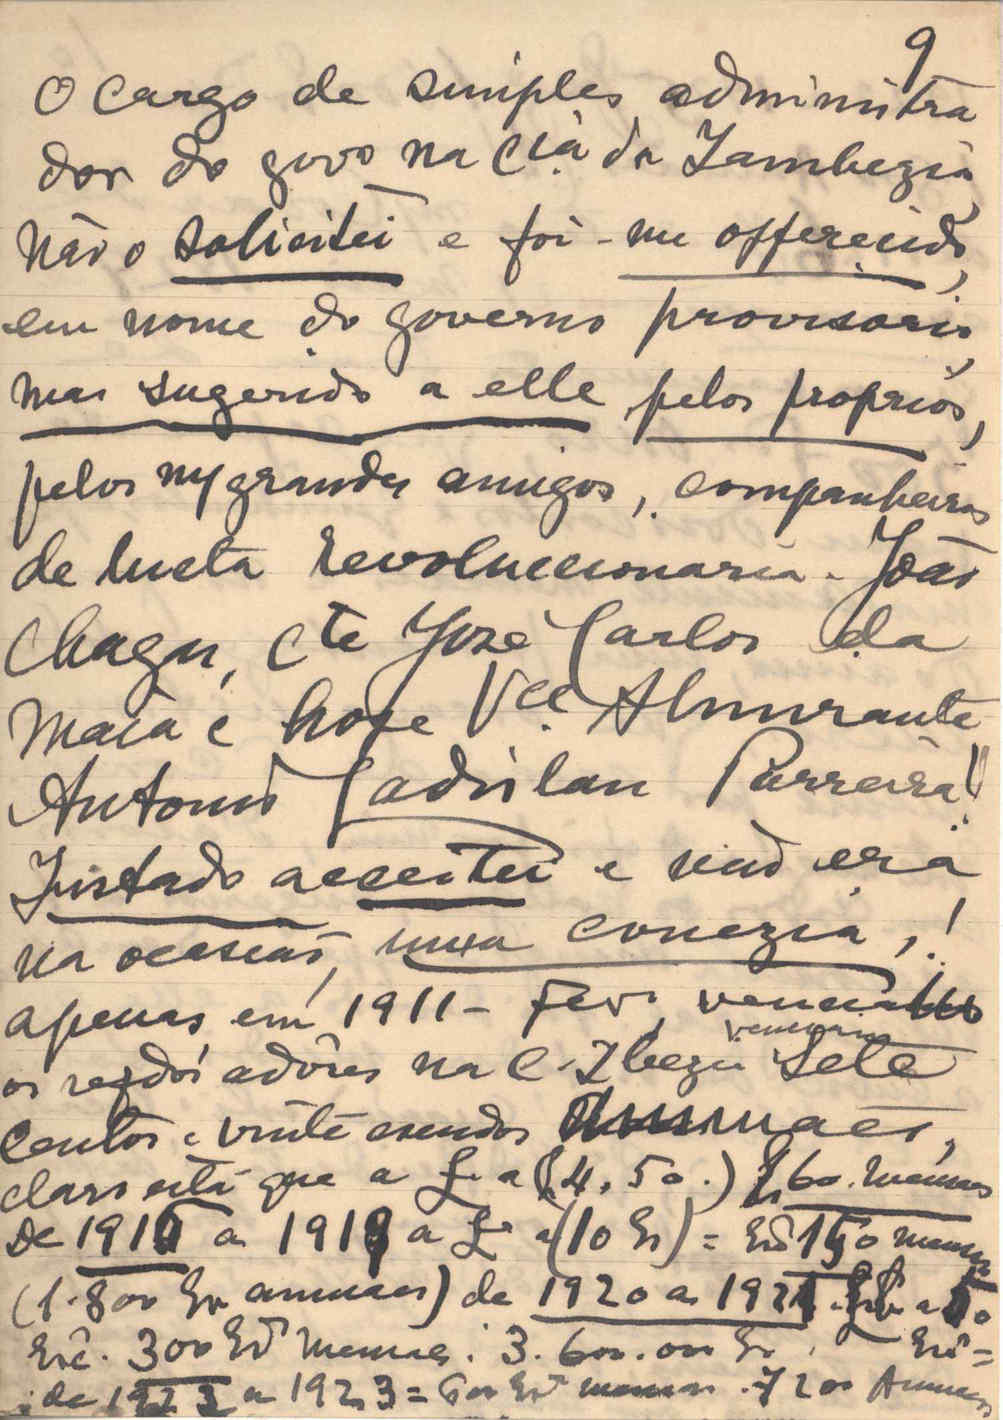 9
O cargo de simples administra
dor do govo na Cia da Zambezia,
não o solicitei e foi-me offerecido,
em nome do governo provisorio,
mas sugerido a elle pelos proprios,
pelos grandes amigos, companheiros
de lucta revoluccionaria - João
Chagas, Cte José Carlos da
Maia e hoje Vce Almirante
Antonio Ladislau Parreira!!
Instado acceitei e não era
na ocasião, uma conezia,!
apenas em 1911 - Fevo,
os adôres na C. Zbezia venciam Sete
centos e vinte escudos annuaes,
claro está que a £ a (4,50.) 60 mensaes
De 1910 a 1919 a £ a (10 Es) = Esc 150 mensaes
(1.800 Es annuaes) de 1920 a 1921 £ a
Esc. 300 Es mensaes. 3.600.00 Es Esc =
de 1923 a 1923 = 600 Esc mensaes. 7200 Annuaes